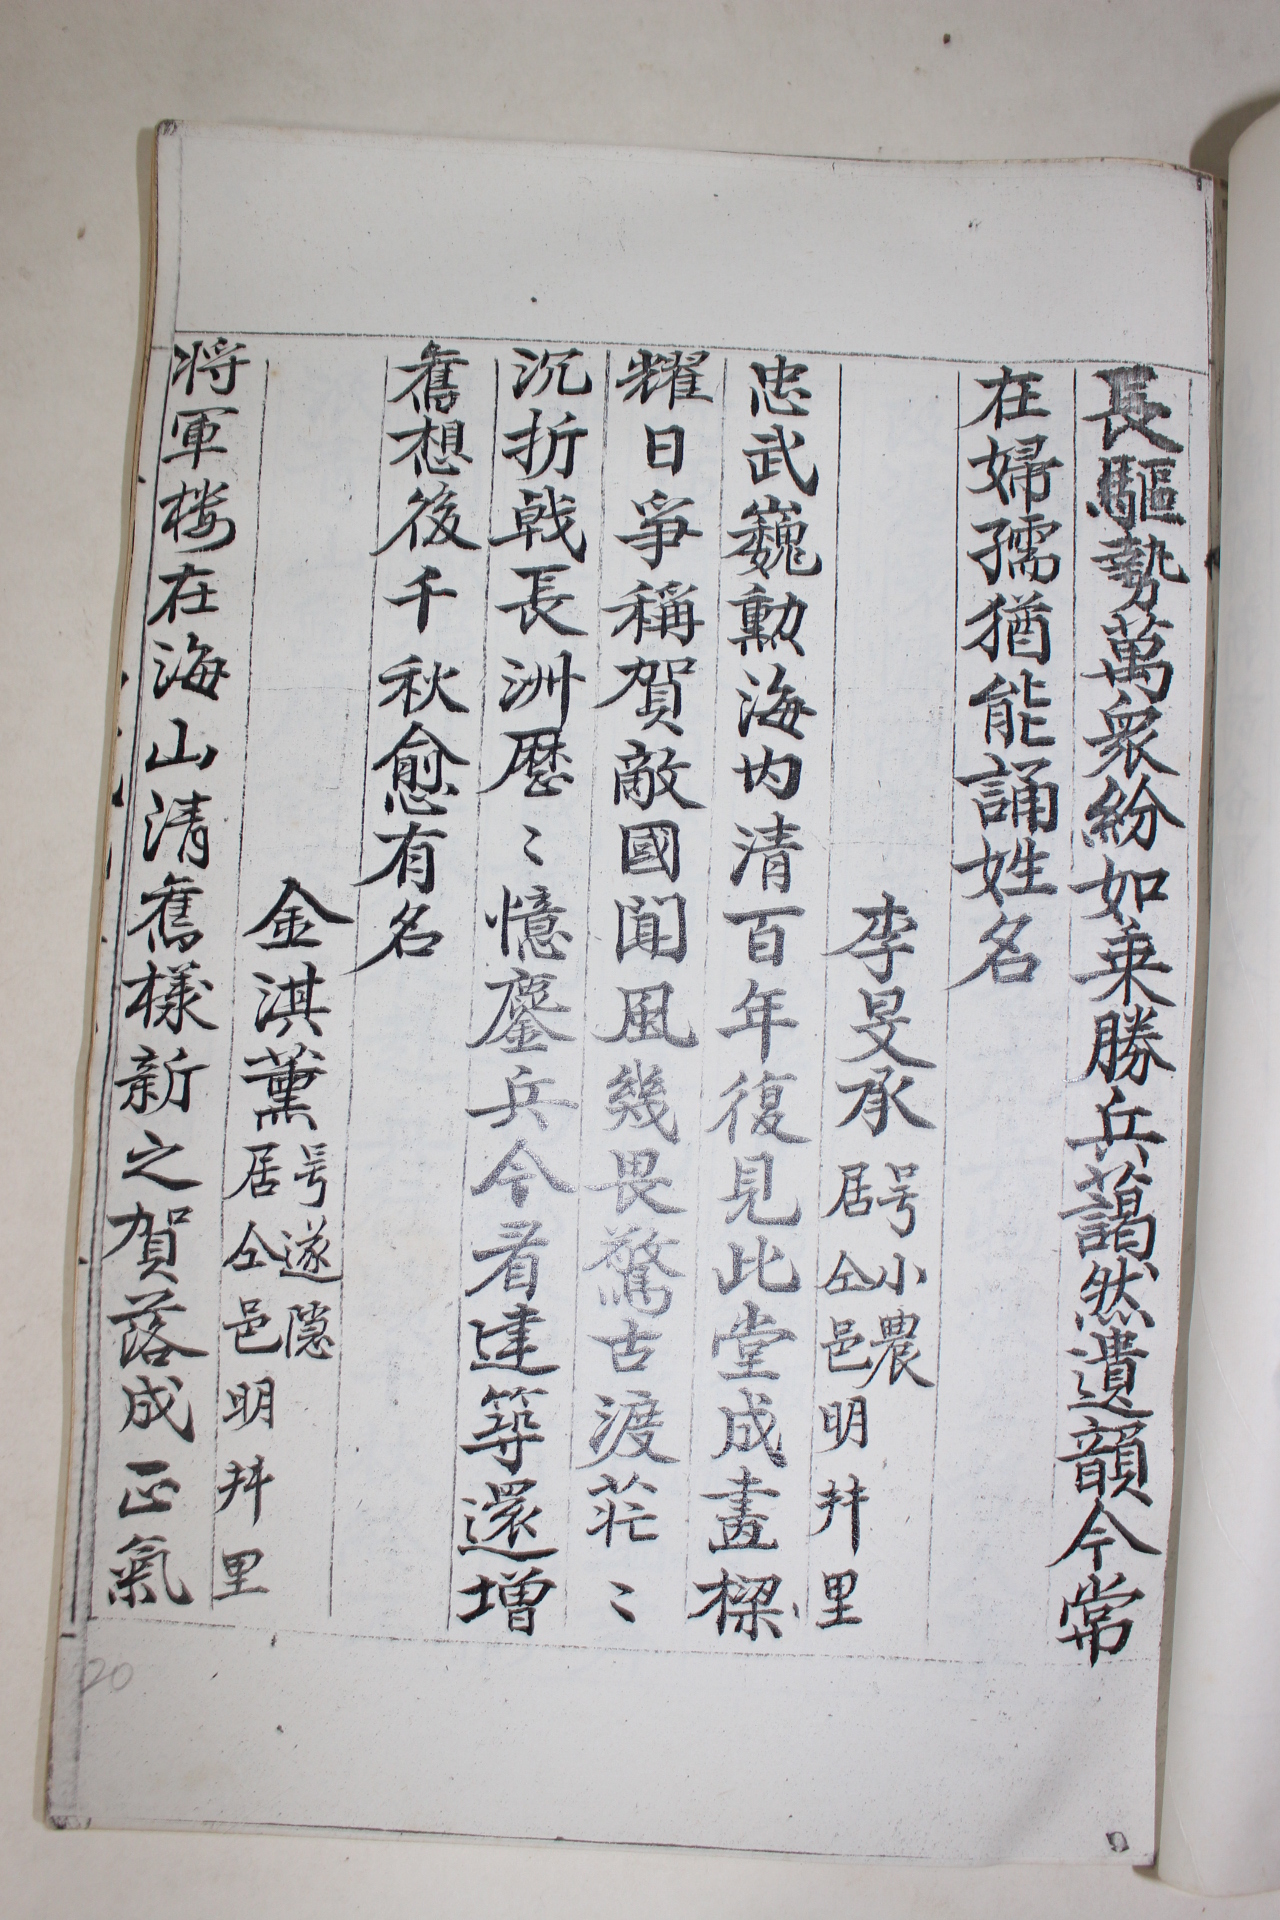 長驅勢萬衆紛如乘勝兵藹然遺韻今常
在婦孺猶能誦姓名
李旻承 号小農 居仝邑明井里
忠武巍勲海内清百年復見此堂成畫樑
耀日爭稱賀敵國聞風幾畏驚古渡茫〻
沉折戟長洲歷〻憶鏖兵今看建築還增
舊想後千秋愈有名
金淇薰 号遂隱 居仝邑明井里
将軍楼在海山清舊樣新之賀落成正氣
20